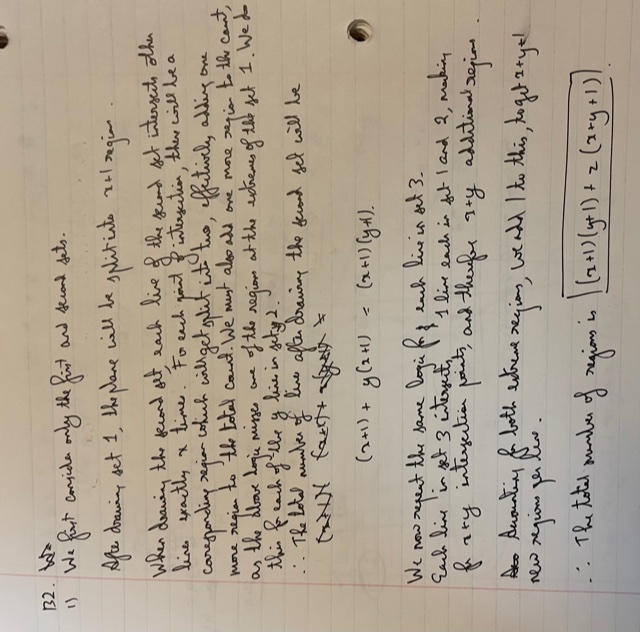 B2. We
1) We first consider only the first and second sets.
After drawing set 1, the plane will be split into x+1 regions.
When drawing the second set, each line of the second set intersects other
lines exactly x times. For each point of intersection, there will be a
corresponding region which will get split into two, effectively, adding one
more region to the total count. We must also add one more region to the count,
as the above logic misses one of the regions at the extreme of the set 1. We do
this for each of the y line in set 2.
∴ The total number of lines after drawing the second set will be
(x+1) + y(x+1) = (x+1)(y+1).
We now repeat the same logic for each line in set 3.
Each line in set 3 intersects 1 line each in set 1 and 2, making
for x+y intersection points, and therefore x+y additional regions.
Accounting for both extreme regions, we add 1 to this, to get x+y+1
new regions per line.
∴ The total number of regions is (x+1)(y+1) + z(x+y+1)